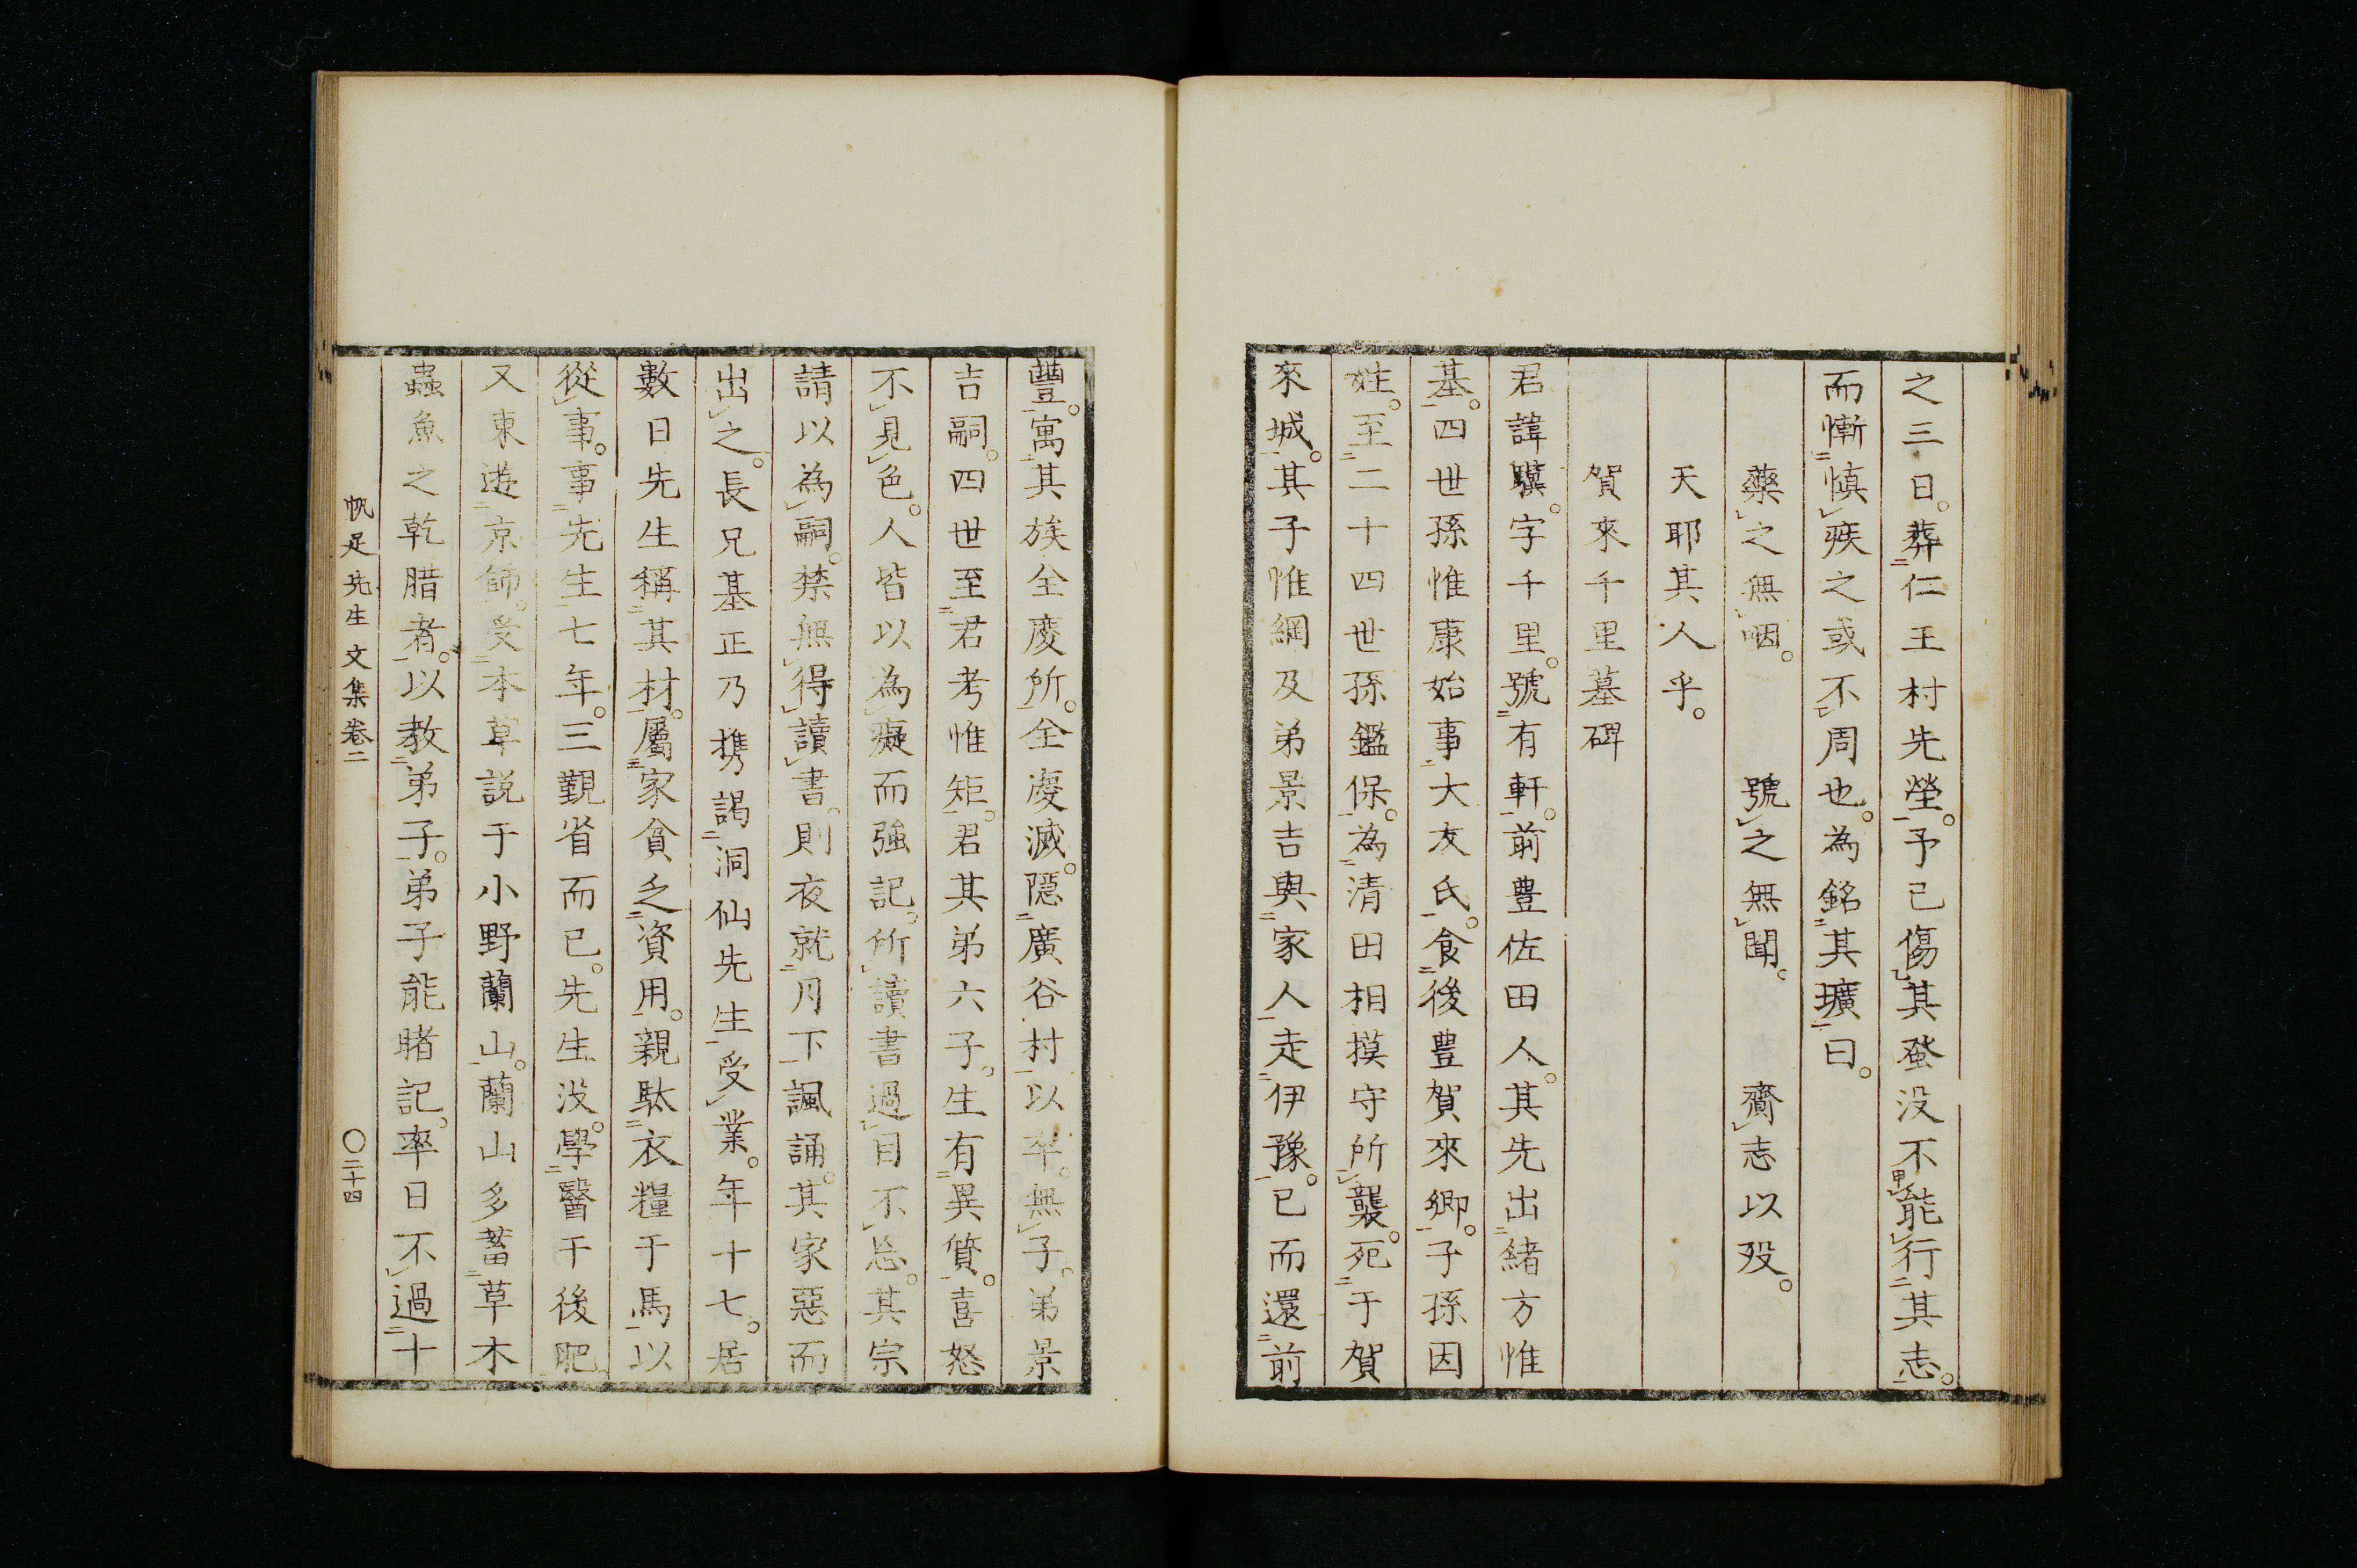 之三日。葬仁王村先塋。予已傷其蚤没不能行其志。
而慚慎疾之或不周也。為銘其壙曰。
藥之無咽。 號之無聞。 齎志以歿。
天耶其人乎。
賀來千里墓碑
君諱驥。字千里。號有軒。前豊佐田人。其先出緒方惟
基。四世孫惟康始事大友氏。食後豊賀來鄉。子孫因
姓。至二十四世孫鑑保。為清田相摸守所襲。死于賀
來城。其子惟綱及弟景吉與家人走伊豫。已而還前
豐。寓其族全慶所。全慶滅。隱廣谷村以卒。無子。弟景
吉嗣。四世至君考惟矩。君其弟六子。生有異質。喜怒
不見色。人皆以為癡而強記。所讀書過目不忘。其宗
請以為嗣。禁無得讀書。則夜就月下諷誦。其家惡而
出之。長兄基正乃携謁洞仙先生受業。年十七。居
數日先生稱其材。屬家貧乏資用。親駄衣糧于馬以
從事。事先生七年。三覲省而已。先生没。學醫于後肥。
又東遊京師。受本草説于小野蘭山。蘭山多蓄草木
蟲魚之乾腊者。以教弟子。弟子能睹記。率日不過十
帆足先生文集卷二 〇二十四